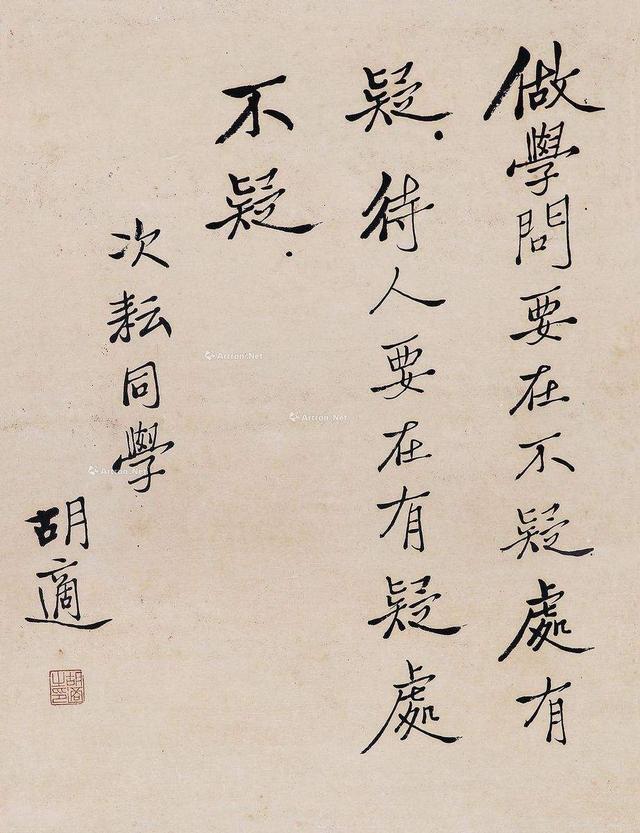 做學問要在不疑處有
疑.待人要在有疑處
不疑.
次耘同學
胡適
胡適之印
Artron.Net
Artron.Net
Artron.Net